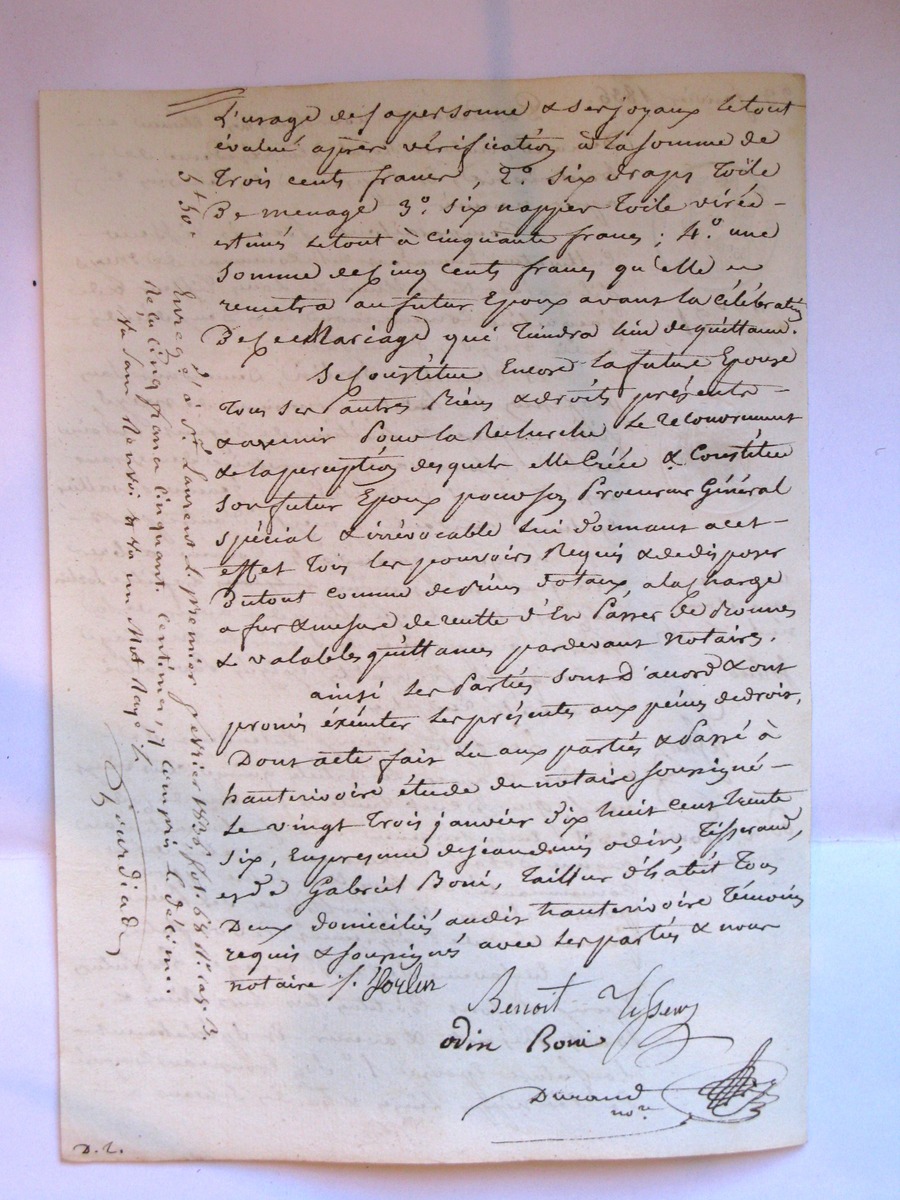 L'usage de sa personne & ses joyaux le tout
évalué après vérification à la somme de
Trois cents francs, 2º. Six draps Toile
De menage 3º. Six nappes Toile virée -
estimés le tout à cinquante francs ; 4º. une
Somme de Cinq cents francs qu'elle en
remettra au futur Epoux avant la célébration
De ce Mariage qui Tiendra lieu de quittance.
Se Constitue Encore la future Epouse
Tous ses autres Biens & droits présents -
& avenir Pour la Recherche le recouvrement
& la perception desquels elle Créée & Constitue
Son futur Epoux pour son Procureur Général
Spécial & irrévocable Lui donnant a cet -
effet Tous les pouvoirs Requis & de disposer
Du tout comme de Biens dotaux, a la charge
a fur & mesure de recette d'En Passer de Bonnes
& valables quittances pardevant Notaires.
ainsi les Parties Sont D'accord & ont
promis éxécuter les présentes aux peines de droit,
Dont acte fait Lu aux parties & Passé à
hauterivoire étude du notaire Soussigné -
Le vingt Trois janvier dix huit cent trente
Six, En presence de jean denis odin, Tisserand,
et de Gabriel Boni, Tailleur d'habit Tous
Deux domiciliés audit hauterivoire Témoins
requis & soussignés avec les parties & nous
notaire ./.
Benoit
odin Boni
Durand
nore
5f 50c
Enreg. à St. Laurent le premier février 1836, fol. 68 Ro. Case 3.
Reçu cinq francs cinquante centimes, y compris le décime.
Sans Renvoi un Mot Rayé ./.
D. L.